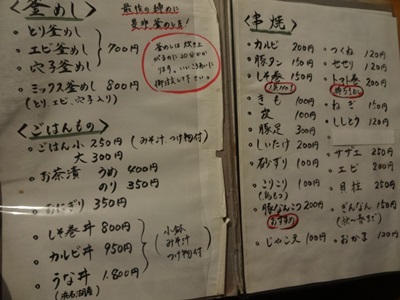 <釜めし>
最後の締めに
是非釜めしを!
・とり釜めし
・エビ釜めし 700円
・穴子釜めし
・ミックス釜めし 800円
(とり、エビ、穴子入り)
釜めしは炊き上
<ごはんもの>
・ごはん小 250円(みそ汁、つけ物付)
大 300円
・お茶漬 うめ 400円
のり 350円
・おにぎり 350円
・しそ巻丼 800円
・カルビ丼 950円
・うな丼 1,800円
小鉢
みそ汁
つけ物付
<串焼>
・カルビ 200円
・豚タン 150円
・しそ巻 150円
・きも 100円
・皮 100円
・豚足 300円
・しいたけ 200円
・砂ずり 100円
・こりこり 100円
・豚なんこつ 200円
おすすめ
・じゃこ天 100円
・つくね 120円
・せせり 120円
・トマト巻 200円
・ねぎ 150円
・ししとう 120円
・サザエ 250円
・エビ 200円
・貝柱 250円
・ぎんなん 150円
・おかき 120円